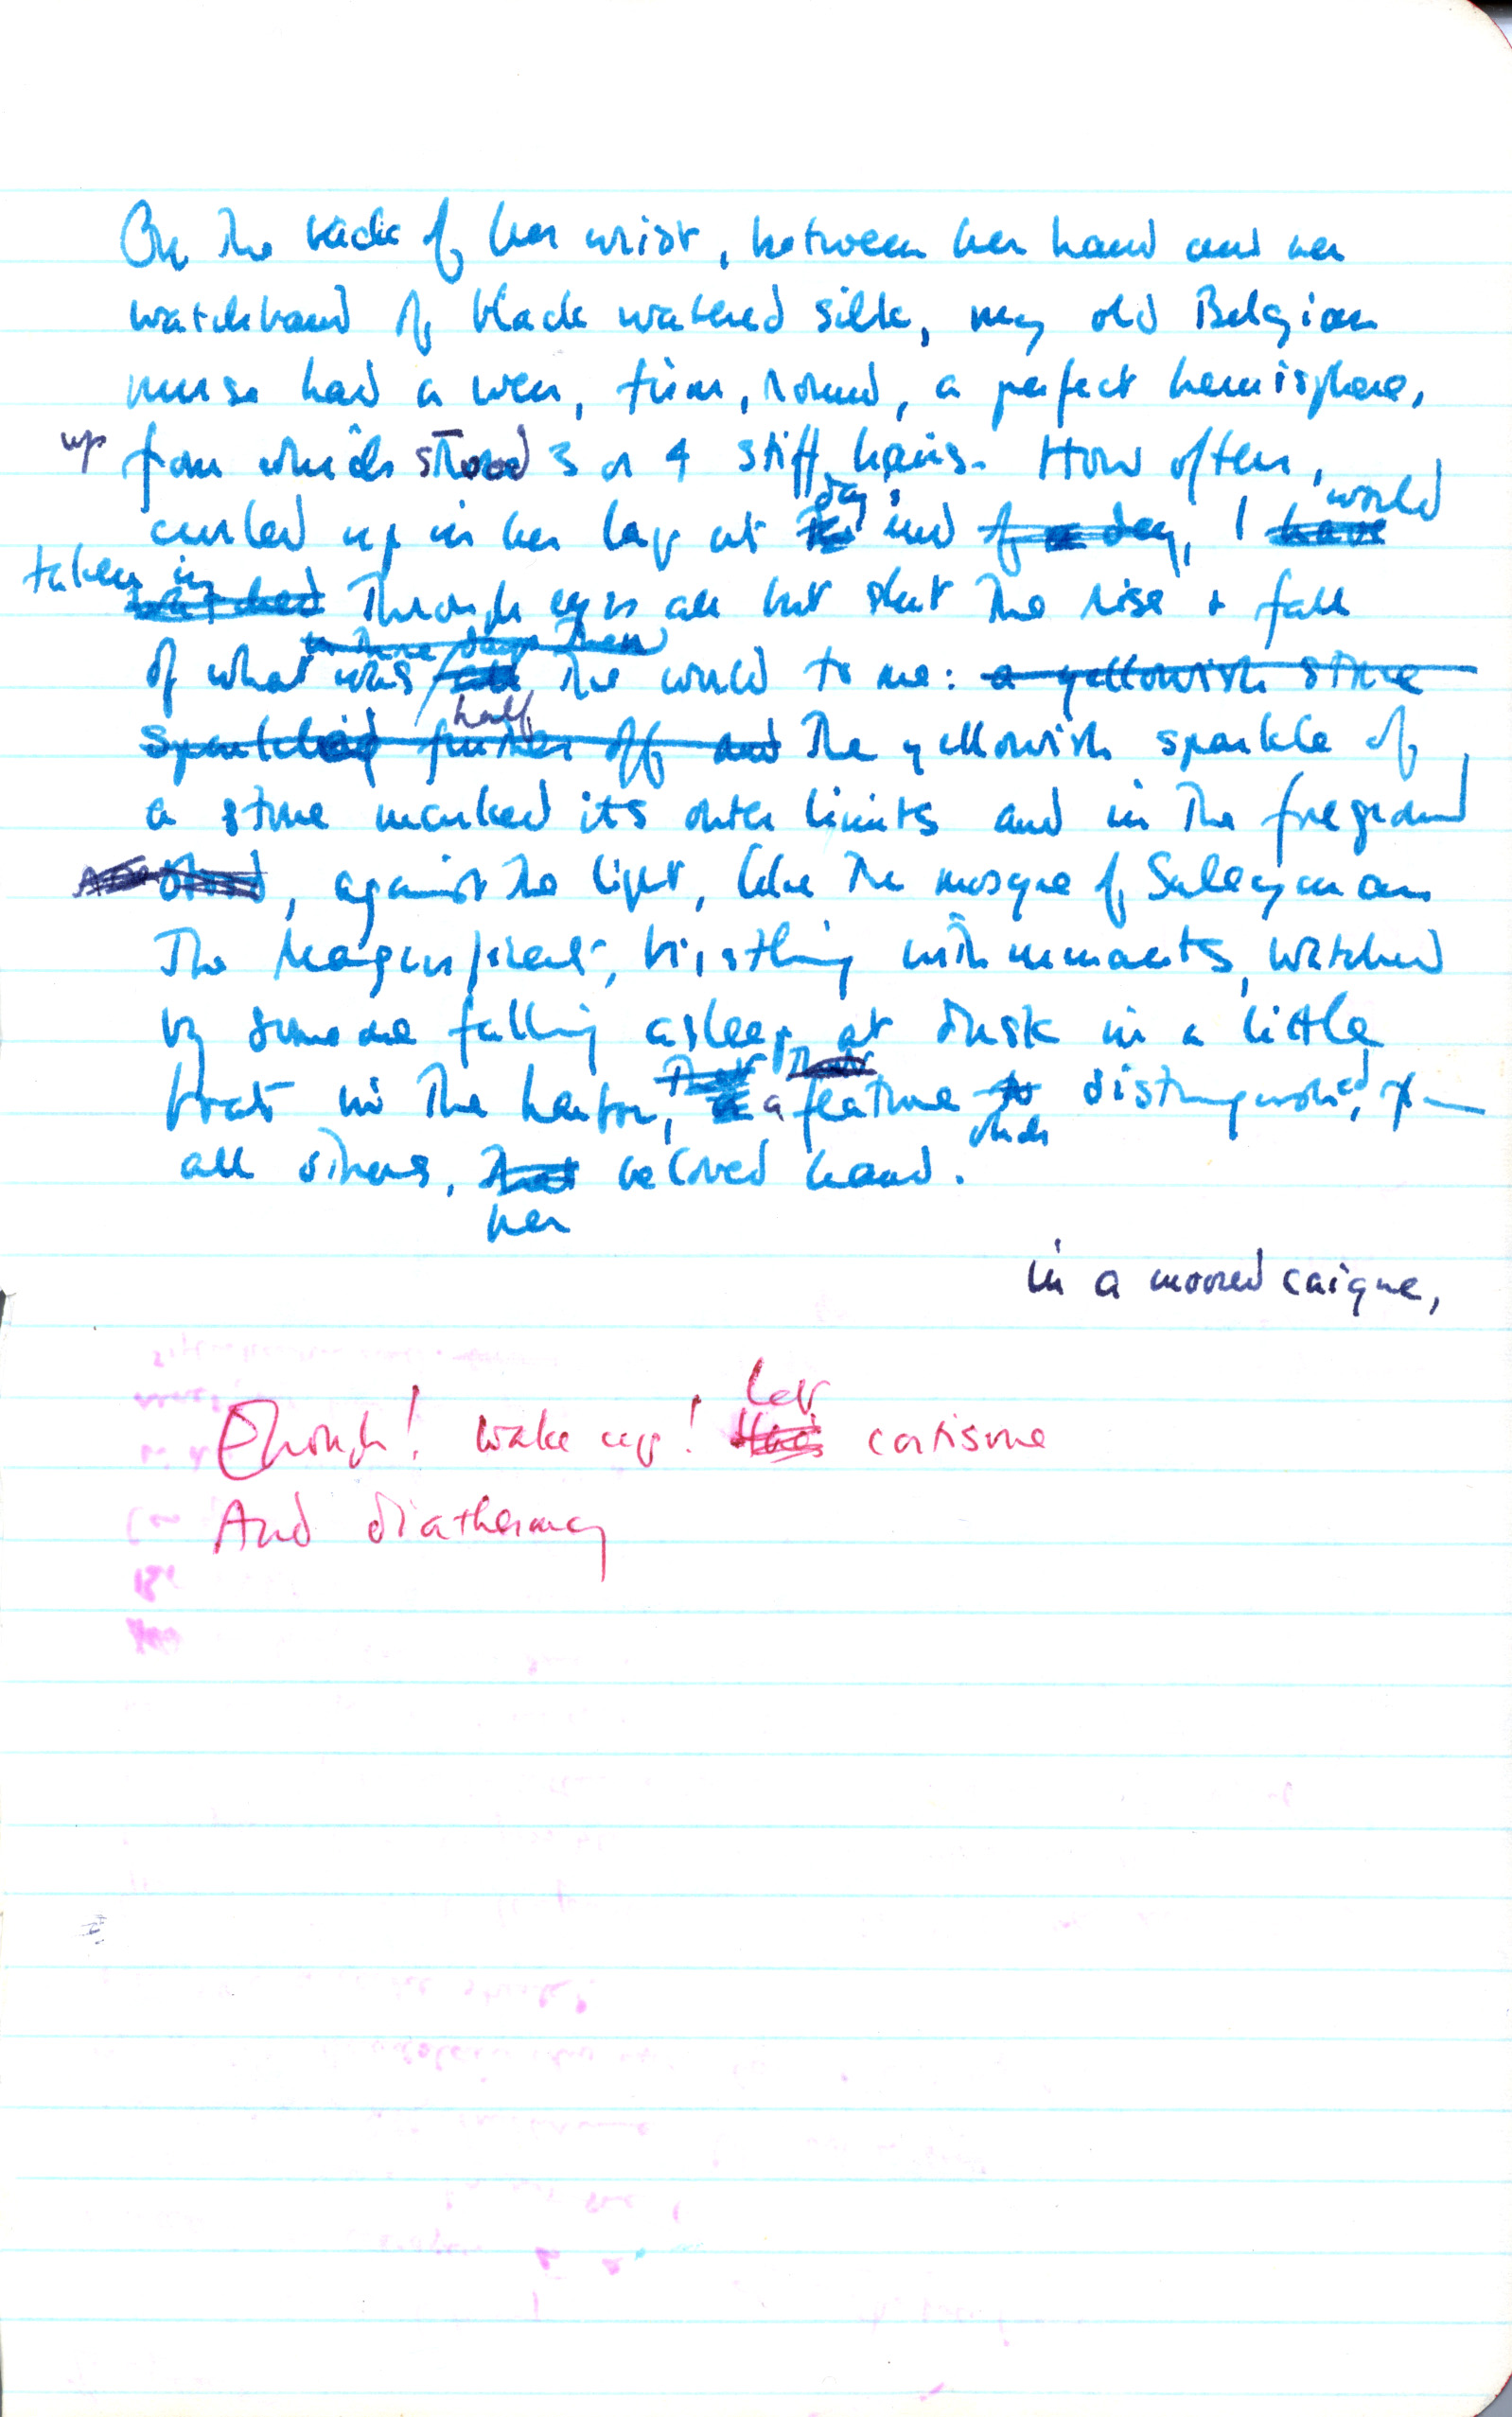 On the back of her wrist, between her hand and her
watchband of black watered silk, my old Belgian
nurse had a wen, firm, round, a perfect hemisphere,
up from which stood 3 or 4 stiff hairs. How often,
day's would
curled up in her lap at the end of a day, I have
taken in
watched through eyes all but shut the rise + fall
in those days then
of what was all the world to me: a yellowish stone
half
sparkled further off and the yellowish sparkle of
a stone marked its outer limits and in the foreground
stood, against the light, like the mosque of Suleyman
the Magnificent, bristling with minarets, watched
by someone falling asleep at dusk in a little
that
boat in the harbor, a feature to distinguished, from
which
all others, that beloved hand.
her
in a moored caïque,
let
Enough! Wake up! cortisone
And diathermy